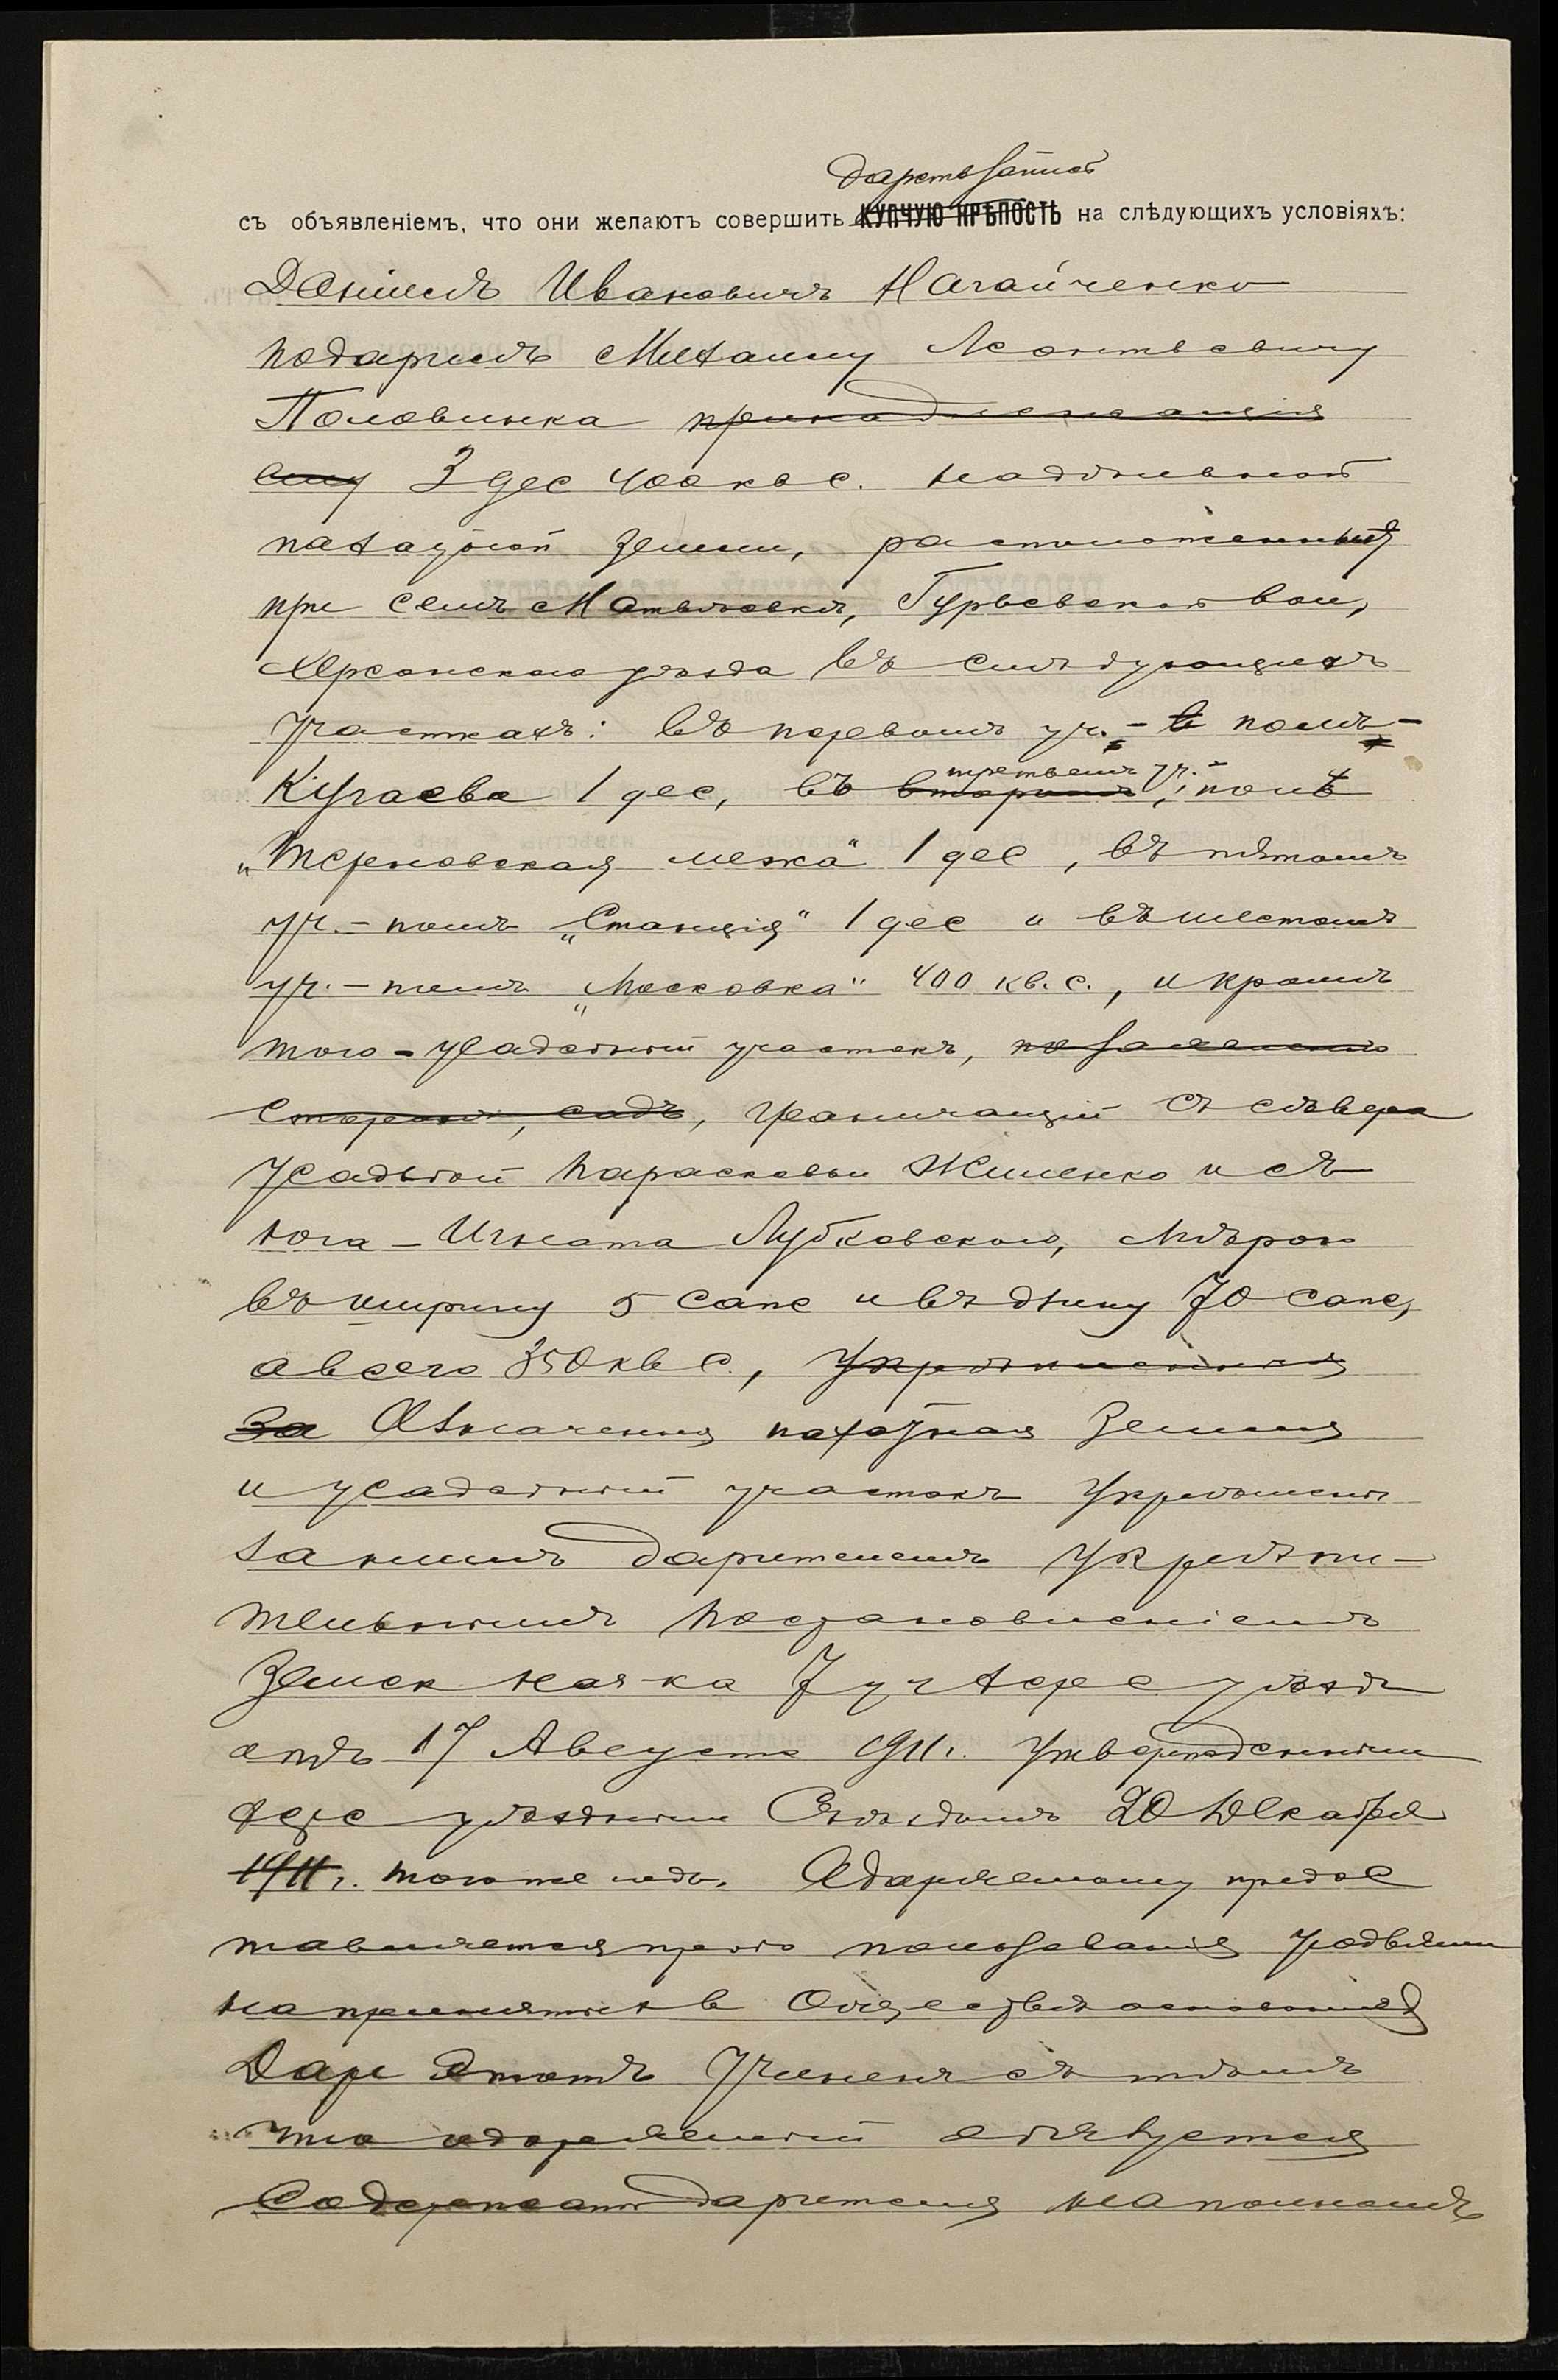 дарств запись
съ объявленіемъ, что они желаютъ совершить КУПЧУЮ КРѢПОСТЬ на слѣдующихъ условіяхъ:
Даніилъ Ивановичъ Нагайченко
подарилъ Михаилу Леонтьевичу
Половинка принадлежащія
ему 3 дес 400 кв с. надѣльной
пахатной земли, расположенныя
при селѣ Матвѣевкѣ, Гурьевской вол,
Херсонскаго уѣзда въ слѣдующихъ
участкахъ: въ первомъ уч. - в полѣ -
третьемъ уч. -
Кугаева 1 дес, въ второмъ, полѣ
„Терновская межа" 1 дес, въ пятомъ
уч. - полѣ „Станція" 1 дес и въ шестомъ
уч. - полѣ „Московка" 400 кв. с., и кромѣ
того - усадебный участокъ,
садъ, граничащій съ сѣвера
усадьбой Парасковьи Жиленко и съ
юга - Игната Лубковскаго, мѣрою
въ ширину 5 саж и въ длину 70 саж,
а всего 350 кв с., укрѣпленныя
за Означенная пахатная земля
и усадебный участокъ укрѣплены
за нимъ дарителемъ укрѣпи-
тельнымъ постановленіемъ
Земск нач-ка 7 уч Херс уѣзда
отъ 17 Августа 1911 г. утвержденнымъ
Херс уѣзднымъ Съѣздомъ 20 Декабря
1911 г. того же года. Одаряемому предос
тавляется право пользованія угодьями
на принятыхъ в Обществѣ основаніяхъ
Даръ этотъ учиненъ съ тѣмъ
что одаряемый обязуется
содержать дарителя на полномъ